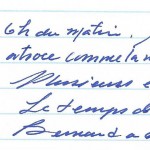 6h du matin,
atroce comme la n
Plusieurs e
Le temps d
Bernard a d